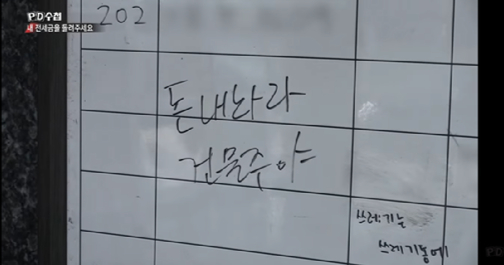 PD수첩
내 전세금을 돌려주세요
202
돈내놔라
건물주야
쓰레기는
쓰레기통에
PD